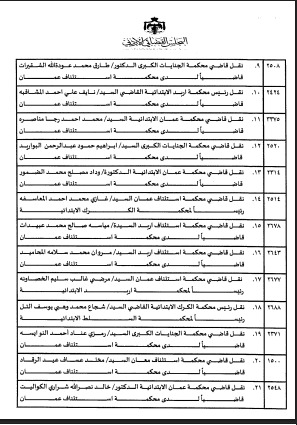 المجلس القضائي الأردني
٢٥٠٨ ٩. نقل قاضي محكمة الجنايات الكبرى الدكتور/ طارق محمد عودةالله الشقيرات
قاضياً لدى محكمة استئناف عمان
٢٤٢٤ ١٠. نقل رئيس محكمة اربد الابتدائية القاضي السيد/ نايف علي احمد المشاقبه
قاضياً لدى محكمة استئناف عمان
٣٣٧٥ ١١. نقل قاضي محكمة عمان الابتدائية السيد/ محمد احمد رجا مناصره
قاضياً لدى محكمة استئناف عمان
٢٥٢٠ ١٢. نقل قاضي محكمة الجنايات الكبرى السيد/ ابراهيم حمود عبدالرحمن البواريد
قاضياً لدى محكمة استئناف عمان
٢٣١٤ ١٣. نقل قاضي محكمة عمان الابتدائية الدكتورة/ وداد مصلح محمد الضمور
قاضياً لدى محكمة استئناف عمان
٢٥١٤ ١٤. نقل قاضي محكمة استئناف عمان السيد/ غازي محمد احمد المعاسفه
رئيساً لمحكمة الكرك الابتدائية
٢٦٧٨ ١٥. نقل قاضي محكمة استئناف اربد السيدة/ مياسه صالح محمد عبيدات
قاضياً لدى محكمة استئناف عمان
٢٦٤٣ ١٦. نقل قاضي محكمة استئناف اربد السيد/ مروان محمد سلامه المحاميد
قاضياً لدى محكمة استئناف عمان
٢٦٧٧ ١٧. نقل قاضي محكمة استئناف عمان السيد/ مرضي غالب سليم الخصاونه
رئيساً لمحكمة اربد الابتدائية
٢٦٨٨ ١٨. نقل رئيس محكمة الكرك الابتدائية القاضي السيد/ شجاع محمد وهبي يوسف التل
رئيساً لمحكمة السلط الابتدائية
٢٣٧١ ١٩. نقل قاضي محكمة الجنايات الكبرى السيد/ رمزي عناد احمد النوايسه
قاضياً لدى محكمة استئناف عمان
١٥٠٠ ٢٠. نقل قاضي محكمة استئناف معان السيد/ مخلد عساف عيد الرقاد
قاضياً لدى محكمة استئناف عمان
٢٥٤٨ ٢١. نقل قاضي محكمة عمان الابتدائية الدكتور/ خالد نصرالله شراري الكواليت
قاضياً لدى محكمة استئناف عمان